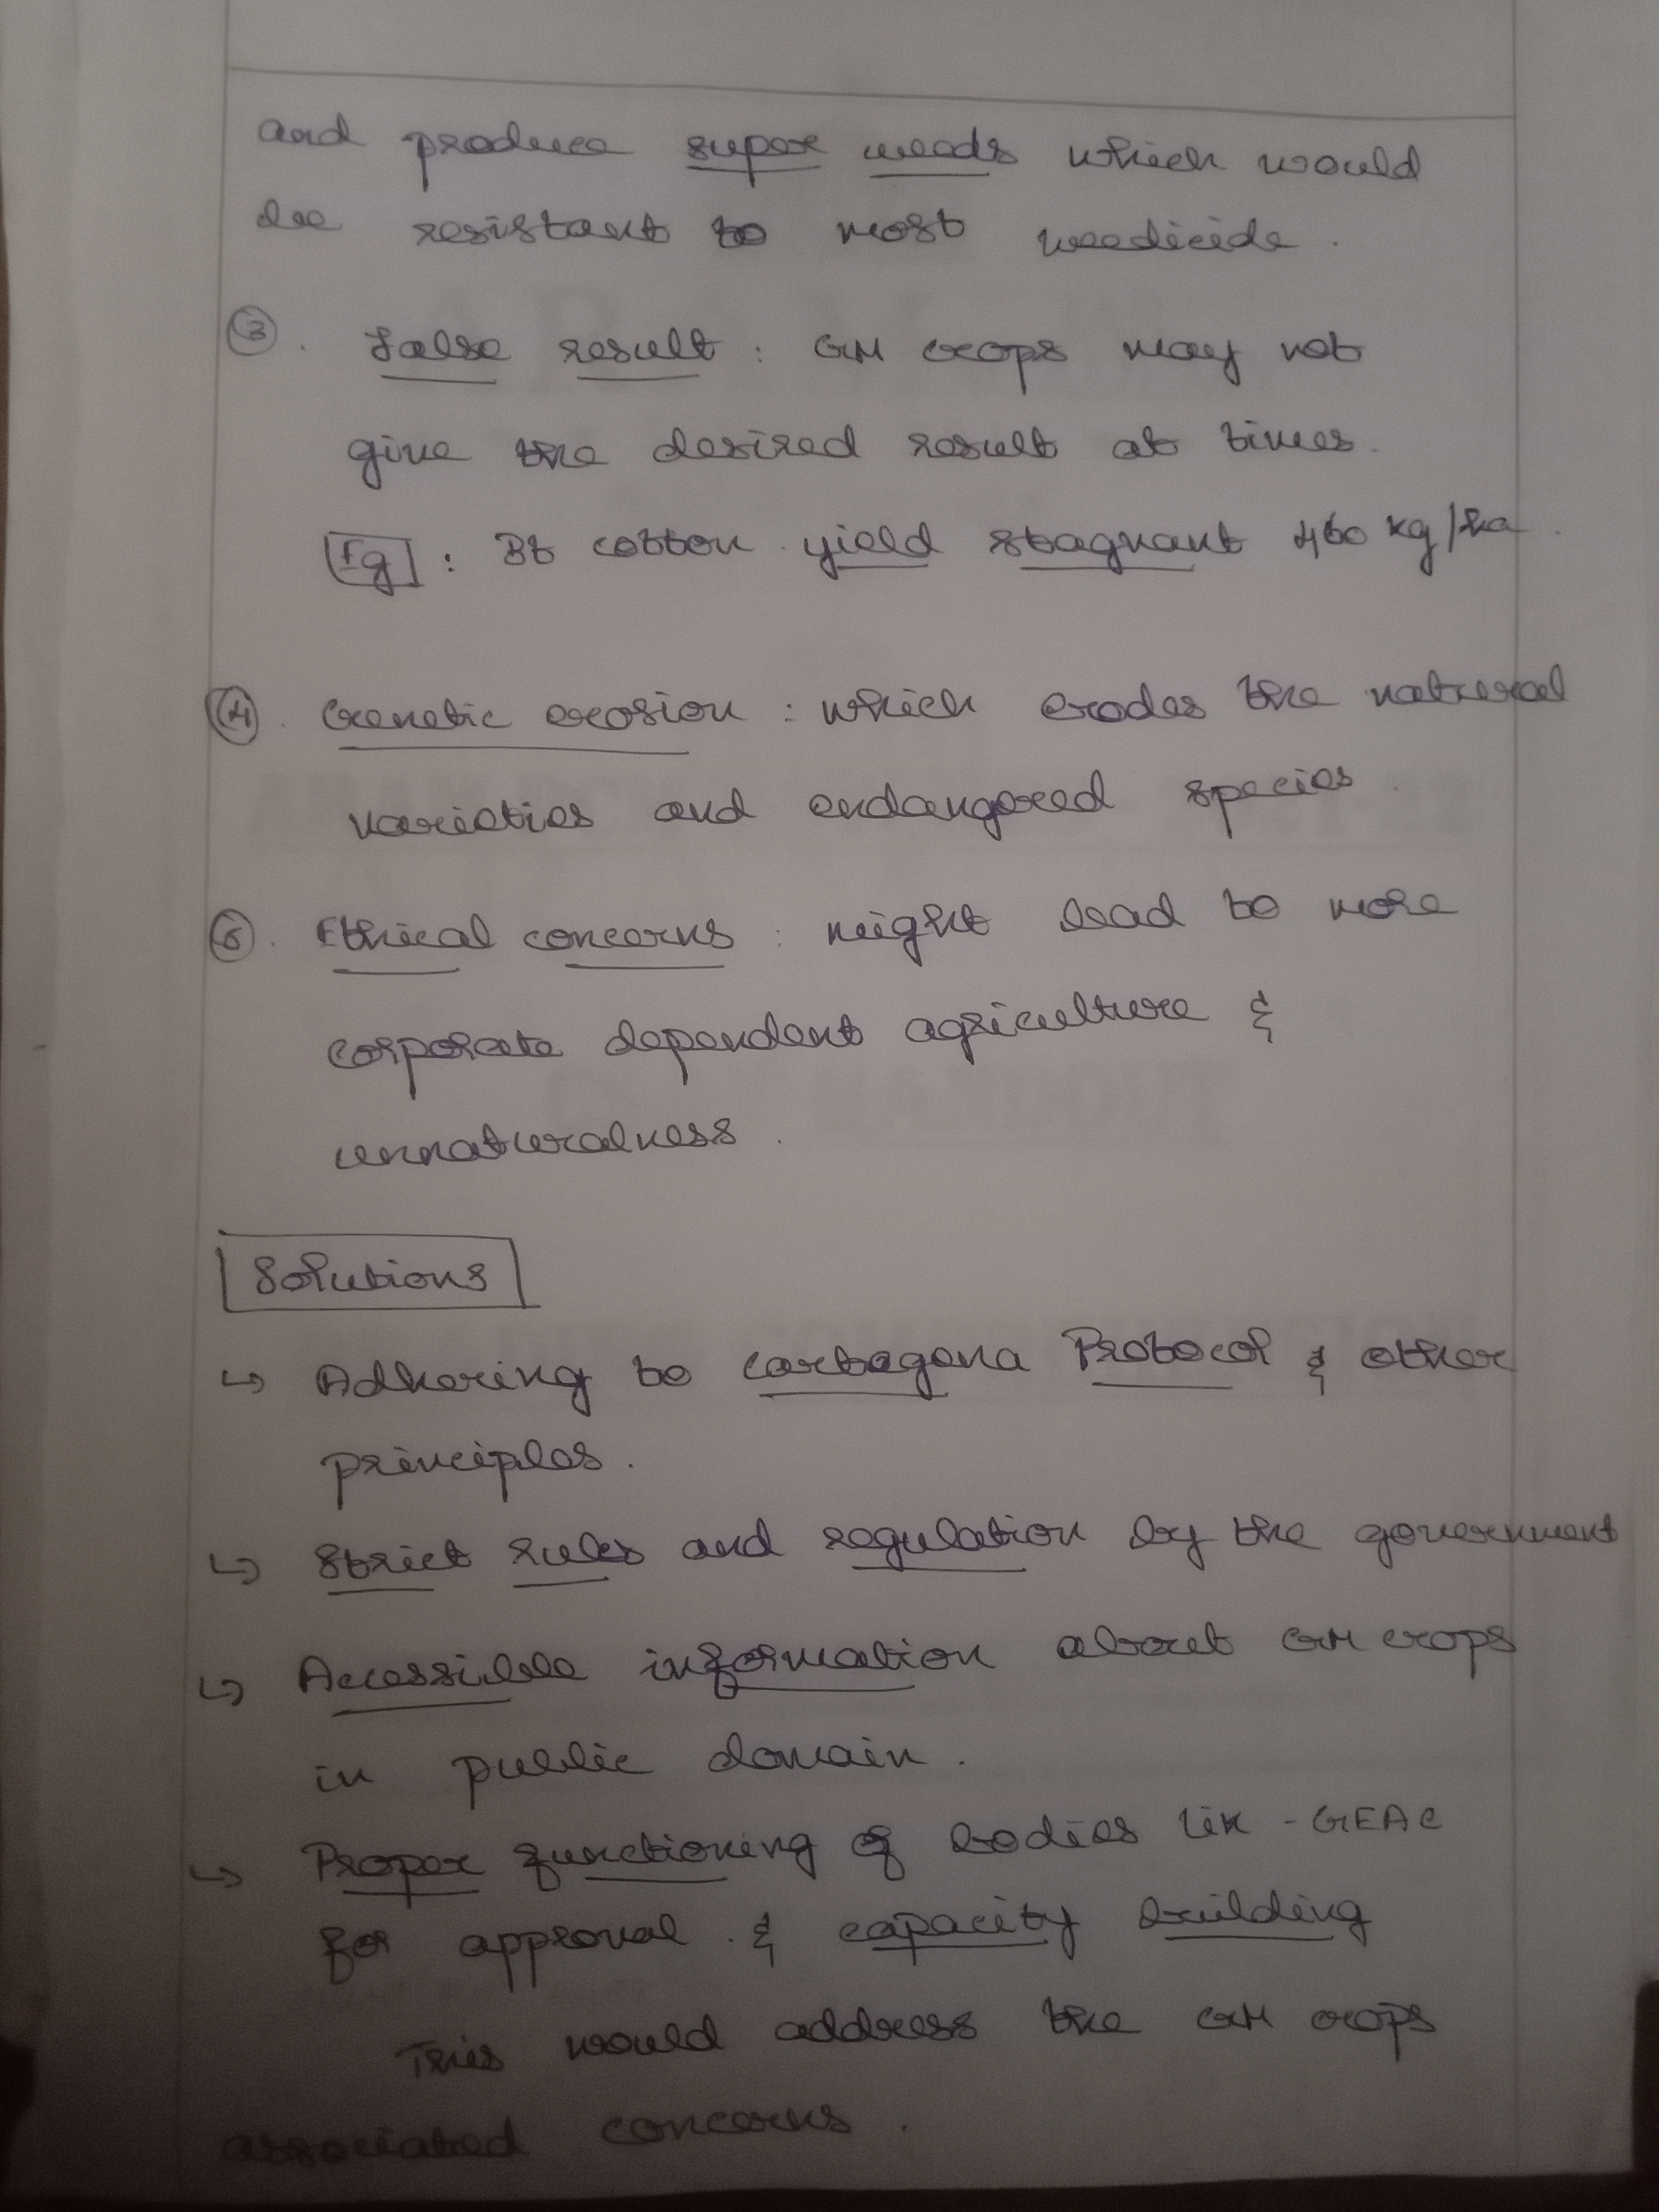 and produce super weeds which would
be resistant to most weedicide.
③. False result : GM crops may not
give the desired result at times.
Eg : Bt cotton yield stagnant 460 kg/ha.
④. Genetic erosion : which erodes the natural
varieties and endangered species.
⑤. Ethical concerns : might lead to more
corporate dependent agriculture &
unnaturalness.
Solutions
↳ Adhering to cartagena Protocol & other
principles.
↳ Strict rules and regulation by the government
↳ Accessible information about GM crops
in public domain.
↳ Proper functioning of bodies lik - GEAC
for approval. & capacity building
This would address the GM crops
associated concerns.